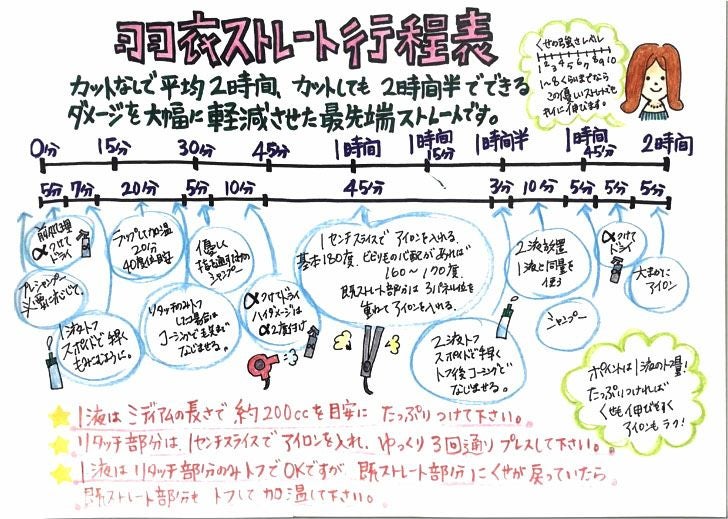 羽衣ストレート行程表
カットなしで平均2時間、カットしても2時間半でできる
ダメージを大幅に軽減させた最先端ストレートです。
くせの強さレベル
1 2 3 4 5 6 7 8 9 10
1~8くらいまでなら
この優しいストレートでも
キレイに伸びます。
0分 15分 30分 45分 1時間 1時間15分 1時間半 1時間45分 2時間
5分 7分 20分 5分 10分 45分 3分 10分 5分 5分 5分
前処理
αつけて
ドライ
プレシャンプー
必要に応じて。
1液トフ
スポイドで早く
もみこむように。
ラップして加温
20分
40度位
リタッチのみトフ
した場合は
コーミングで毛先まで
なじませる。
優しく
シャンプー
αつけてドライ
ハイダメージは
α2度付け
1センチスライスで アイロンを入れる。
基本180度、ビビリの心配があれば
160~170度
既ストレート部分は 3パネル位を
重ねてアイロンを入れる。
2液トフ
スポイドで手早く
トフ後コーミングで
なじませる。
2液放置
1液と同量を
使う
シャンプー
αつけて
ドライ
大まかに
アイロン
ポイントは1液のトフ量!
たっぷりつければ
くせも伸びやすく
アイロンもラク!
1液はミディアムの長さで 約200ccを目安に たっぷりつけて下さい。
リタッチ部分は、1センチスライスで アイロンを入れ、ゆっくり3回通りプレスして下さい。
1液はリタッチ部分のみトフでOKですが、既ストレート部分にくせが戻っていたら
既ストレート部分も トフして加温して下さい。